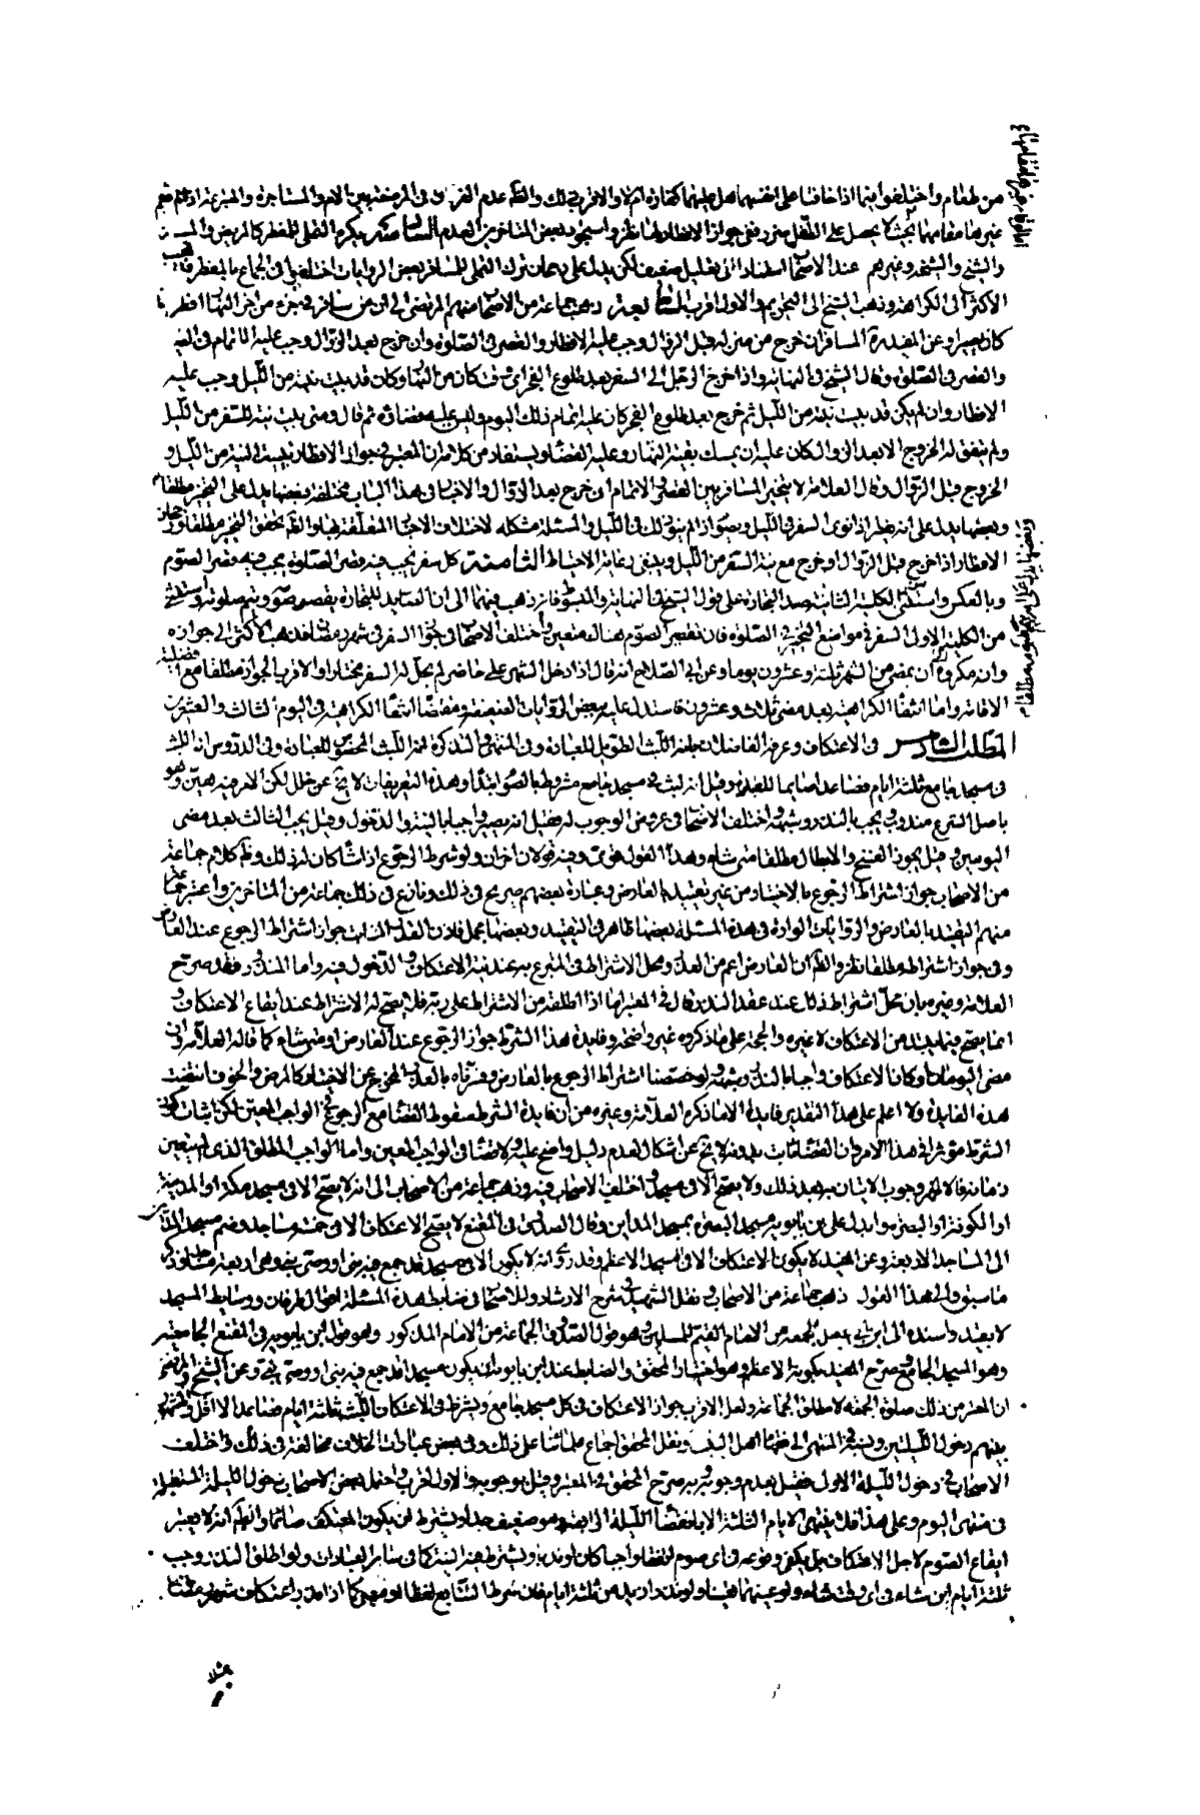 من طعام واختلفوا فيما اذا خافتا على انفسهما هل عليهما كفارة ام لا والاقرب ذلك والظ عدم الفرق في المرضعة بين الام والمستاجرة والمتبرعة اذا لم يقم
غيرها مقامها بحيث لا يحصل على الطفل ضرر وفي جواز الافطار لها نظر واستجود بعض المتاخرين العدم السابعة يكره التملي للمفطر كالمريض والمسافر
والشيخ والشيخة وغيرهم عند الاصحاب استنادا الى تعليل ضعيف لكن يدل على رجحان ترك التملي للمسافر بعض الروايات اختلفوا في الجماع بالمفطر فذهب
الاكثر الى الكراهة وذهب الشيخ الى التحريم والاول اقرب ذهب جماعة من الاصحاب منهم المرتضى الى ان من سافر في جزء من اجزاء النهار افطر
كان يسيرا وعن المفيد ره المسافر ان خرج من منزله قبل الزوال وجب عليه الافطار والقصر في الصلوة وان خرج بعد الزوال وجب عليه الاتمام في
والقصر في الصلوة وقال الشيخ في النهاية واذا خرج الرجل الى السفر بعد طلوع الفجر اي وقت كان من النهار وكان قد بيت نيته من الليل وجب عليه
الافطار وان لم يكن قد بيت نيته من الليل ثم خرج بعد طلوع الفجر كان عليه اتمام ذلك اليوم وليس عليه قضاؤه ثم قال ومتى بيت نيته للسفر من الليل
ولم يتفق له الخروج الا بعد الزوال كان عليه ان يمسك بقية النهار وعليه القضاء ويستفاد من كلامه ان المعتبر في جواز الافطار تبييت النية من الليل و
الخروج قبل الزوال وقال العلامة لا يتخير المسافر بين القصر والاتمام ان خرج بعد الزوال والاخبار في هذا الباب مختلفة فبعضها يدل على التخيير مطلقا
وبعضها يدل على انه يفطر اذا نوى السفر في الليل ويصوم اذا لم ينو ذلك في الليل والمسئلة مشكلة لاختلاف الاخبار المتعلقة بها والظ تحقق التخيير مطلقا
الافطار اذا خرج قبل الزوال او خرج مع نية السفر من الليل وينبغي رعاية الاحتياط الثامنة كل سفر يجب فيه قصر الصلوة يجب فيه قصر الصوم
وبالعكس واستثني من الكلية الثانية صيد التجارة على قول الشيخ في النهاية والمبسوط فانه ذهب فيهما الى ان الصايد للتجارة يقصر صومه ويتم صلوته واستثني
من الكلية الاولى السفر في مواضع التخيير في الصلوة فان تقصير الصوم هناك متعين واختلف الاصحاب في جواز السفر في شهر رمضان فذهب الاكثر الى جوازه
وانه مكروه الى ان يمضي من الشهر ثلثة وعشرون يوما وعن ابي الصلاح انه قال اذا دخل الشهر على حاضر لم يحل له السفر مختارا والاقرب الجواز مطلقا مع افضلية
الاقامة واما انتفاء الكراهة بعد مضي ثلث وعشرون فاستدل عليه ببعض الروايات الضعيفة ومقتضاها انتفاء الكراهة في اليوم الثالث والعشرين
المطلب السادس في الاعتكاف وعرفه الفاضلان بانه اللبث الطويل للعبادة وفي المنتهى والتذكرة انه اللبث المخصوص للعبادة وفي الدروس انه اللبث
في مسجد جامع ثلثة ايام فصاعدا صايما للعبادة وقيل انه لبث في مسجد جامع مشروط بالصوم ابتداء وهذه التعريفات لا يخ عن خلل لكن الامر فيه هين وهو
باصل الشرع مندوب ويجب بالنذر وشبهه واختلف الاصحاب في عروض الوجوب له فقيل انه يصير واجبا بالنية والدخول وقيل يجب الثالث بعد مضي
اليومين وقيل يجوز الفسخ والابطال مطلقا متى شاء وهذا القول قوي وفيه قولان اخران ولو شرط الرجوع اذا شاء كان له ذلك وظ كلام جماعة
من الاصحاب جواز اشتراط الرجوع بالاختيار من غير تقييد بالعارض وعبارة بعضهم صريح في ذلك ونازع في ذلك جماعة من المتاخرين واعتبر جماعة
منهم التقييد بالعارض والروايات الواردة في هذه المسئلة بعضها ظاهر في التقييد وبعضها مجمل فاذن القدر الثابت جواز اشتراط الرجوع عند العارض
وفي جواز اشتراطه مطلقا نظر والظ ان العارض اعم من العذر ومحل الاشتراط في المتبرع به عند نية الاعتكاف والدخول فيه واما المنذور فقد صرح
العلامة وغيره بان محل اشتراط ذلك عند عقد النذر قال في المعتبر اما اذا اطلقه من الاشتراط على ربه فلا يصح له الاشتراط عند ايقاع الاعتكاف و
انما يصح فيما يبتدء من الاعتكاف لا غيره والحجة على ما ذكروه غير واضحة وفايدة هذا الشرط جواز الرجوع عند العارض او متى شاء كما قاله العلامة وان
مضى اليومان او كان الاعتكاف واجبا بالنذر وشبهه ولو خصصنا اشتراط الرجوع بالعارض وفسرناه بالعذر المخرج عن الاختيار كالمرض والخوف انتفت
هذه الفايدة ولا اعلم على هذا التقدير فايدة الا ما ذكره العلامة وغيره من ان فايدة الشرط سقوط القضاء مع الرجوع في الواجب المعين لكن اثبات كون
الشرط مؤثرا في هذا الامر وان القضاء ثابت بدونه لا يخ عن اشكال لعدم دليل واضح عليه ولا قضاء في الواجب المعين واما الواجب المطلق الذي لم يتعين
زمانه فالاظهر وجوب الاتيان به بعد ذلك ولا يصح الا في مسجد واختلف الاصحاب فيه وذهب جماعة من الاصحاب الى انه لا يصح الا في مسجد مكة او المدينة
او الكوفة او البصرة وابدل علي بن بابويه مسجد البصرة بمسجد المداين وقال الصدوق في المقنع لا يصح الاعتكاف الا في خمسة مساجد وضم مسجد المداين
الى المساجد الاربعة وعن المفيد لا يكون الاعتكاف الا في المسجد الاعظم وقد روي انه لا يكون الا في مسجد قد جمع فيه نبي او وصي نبي وهي اربعة مساجد وذكر
ما سبق والى هذا القول ذهب جماعة من الاصحاب ونقل الشهيد في شرح الارشاد وللاصحاب في ضابط هذه المسئلة اقوال طرفان ووسايط المسجد
لا بقيد واسنده الى ابن ابي عقيل الجمعة من الامام القيم للمسلمين وهو قول الصدوق الجماعة من الامام المذكور وهو قول ابن بابويه في المقنع الجامعية
وهو المسجد الجامع وصرح المفيد بكونه الاعظم وهو اختيار المحقق والضابط عند ابن بابويه ان يكون مسجدا قد جمع فيه نبي او وصي نبي وعن الشيخ والمرتضى
ان المعتبر من ذلك صلوة الجمعة لا مطلق الجماعة ولعل الاقرب جواز الاعتكاف في كل مسجد جامع ويشترط في الاعتكاف اللبث ثلثة ايام فصاعدا لا اقل والمشهور
بينهم دخول الليلتين ونسبه في المنتهى الى فقهاء اهل البيت ونقل المحقق اجماع علمائنا على ذلك وفي بعض عبارات الخلاف مخالفة في ذلك واختلف
الاصحاب في دخول الليلة الاولى فقيل بعدم وجوبه وبه صرح المحقق في المعتبر وقيل بوجوبه والاول اقرب واحتمل بعض الاصحاب دخول الليلة المستقبلة
في منتهى اليوم وعلى هذا فلا ينتهي الايام الثلثة الا بانقضاء الليلة الرابعة وهو ضعيف جدا ويشترط ان يكون المعتكف صائما والظ انه لا يعتبر
ايقاع الصوم لاجل الاعتكاف بل يكفي وقوعه في اي صوم اتفق واجبا كان او ندبا ويشترط فيه النية كما في ساير العبادات ولو اطلق النذر وجب
ثلثة ايام اين شاء في اي وقت شاء ولو عينهما تعينا ولو نذر ازيد من ثلثة ايام فان شرط التتابع لفظا او معنى كما اذا نذر اعتكاف شهر